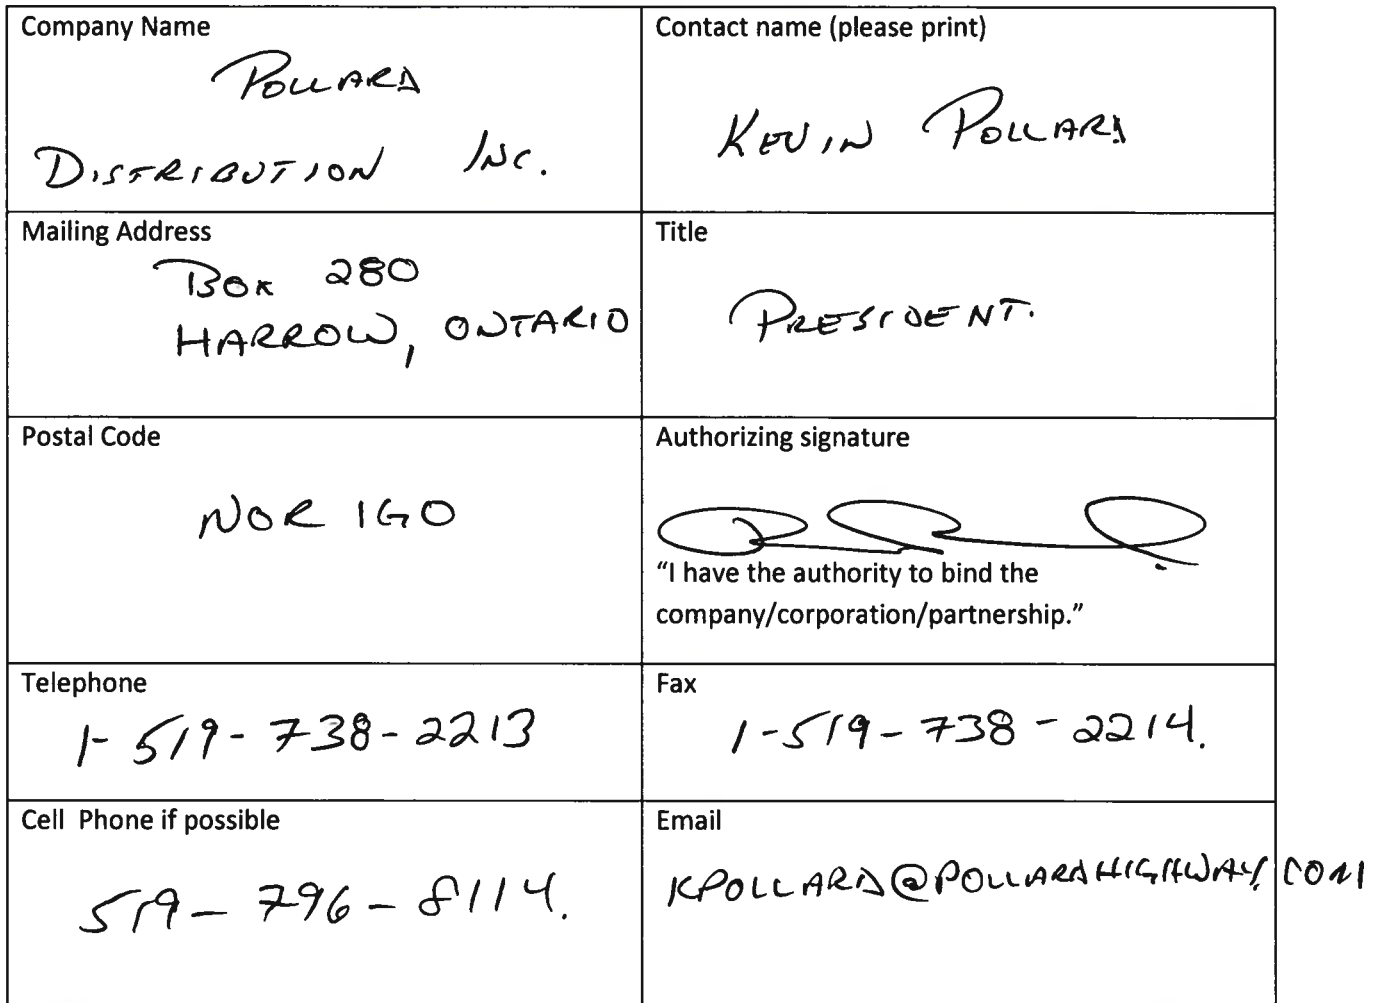 Company Name
POLLARD
DISTRIBUTION INC.
Contact name (please print)
KEVIN POLLARD
Mailing Address
BOX 280
HARROW, ONTARIO
Title
PRESIDENT.
Postal Code
NOR 1G0
Authorizing signature
“I have the authority to bind the
company/corporation/partnership.”
Telephone
1-519-738-2213
Fax
1-519-738-2214.
Cell Phone if possible
519-796-8114.
Email
KPOLLARD@POLLARDHIGHWAY.COM